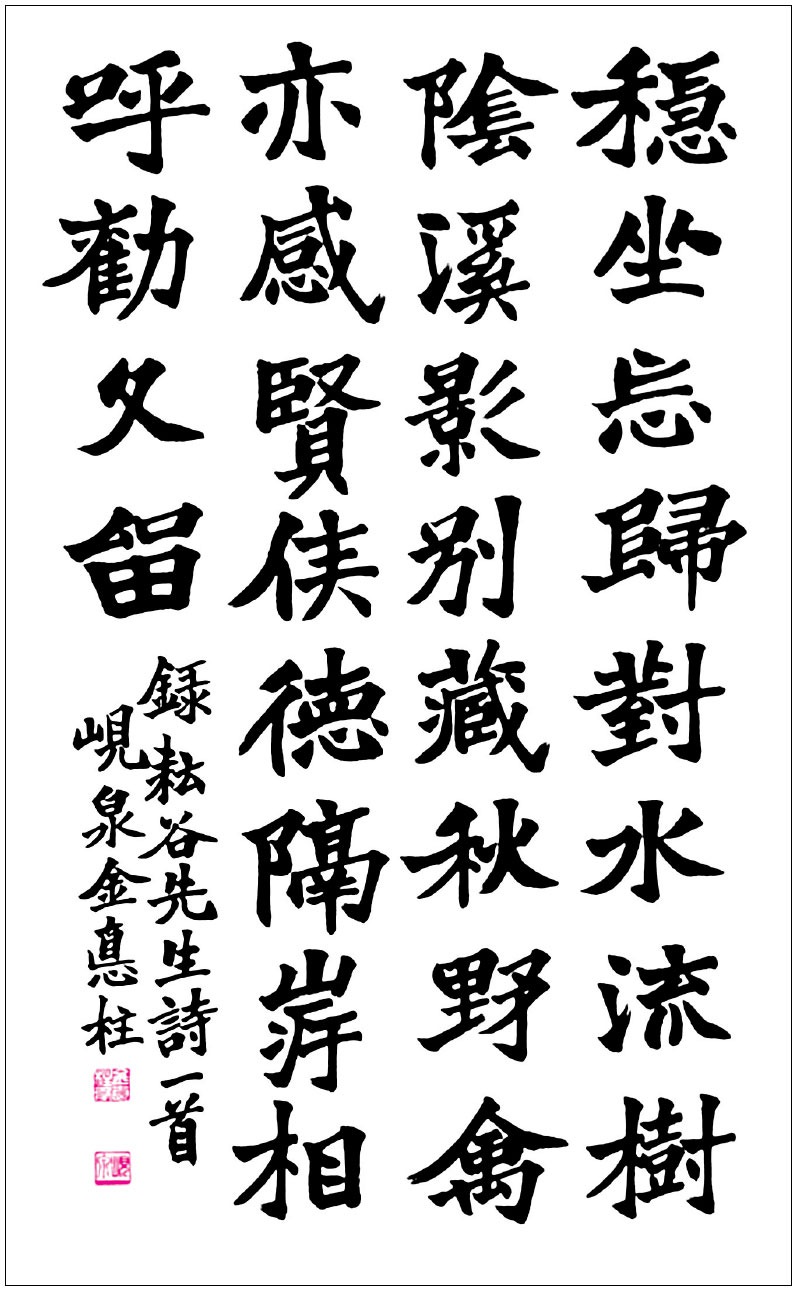 穩坐忘歸對水流樹
陰溪影別藏秋野禽
亦感賢侯德隔岸相
呼勸久留
録耘谷先生詩一首
峴泉金悳柱